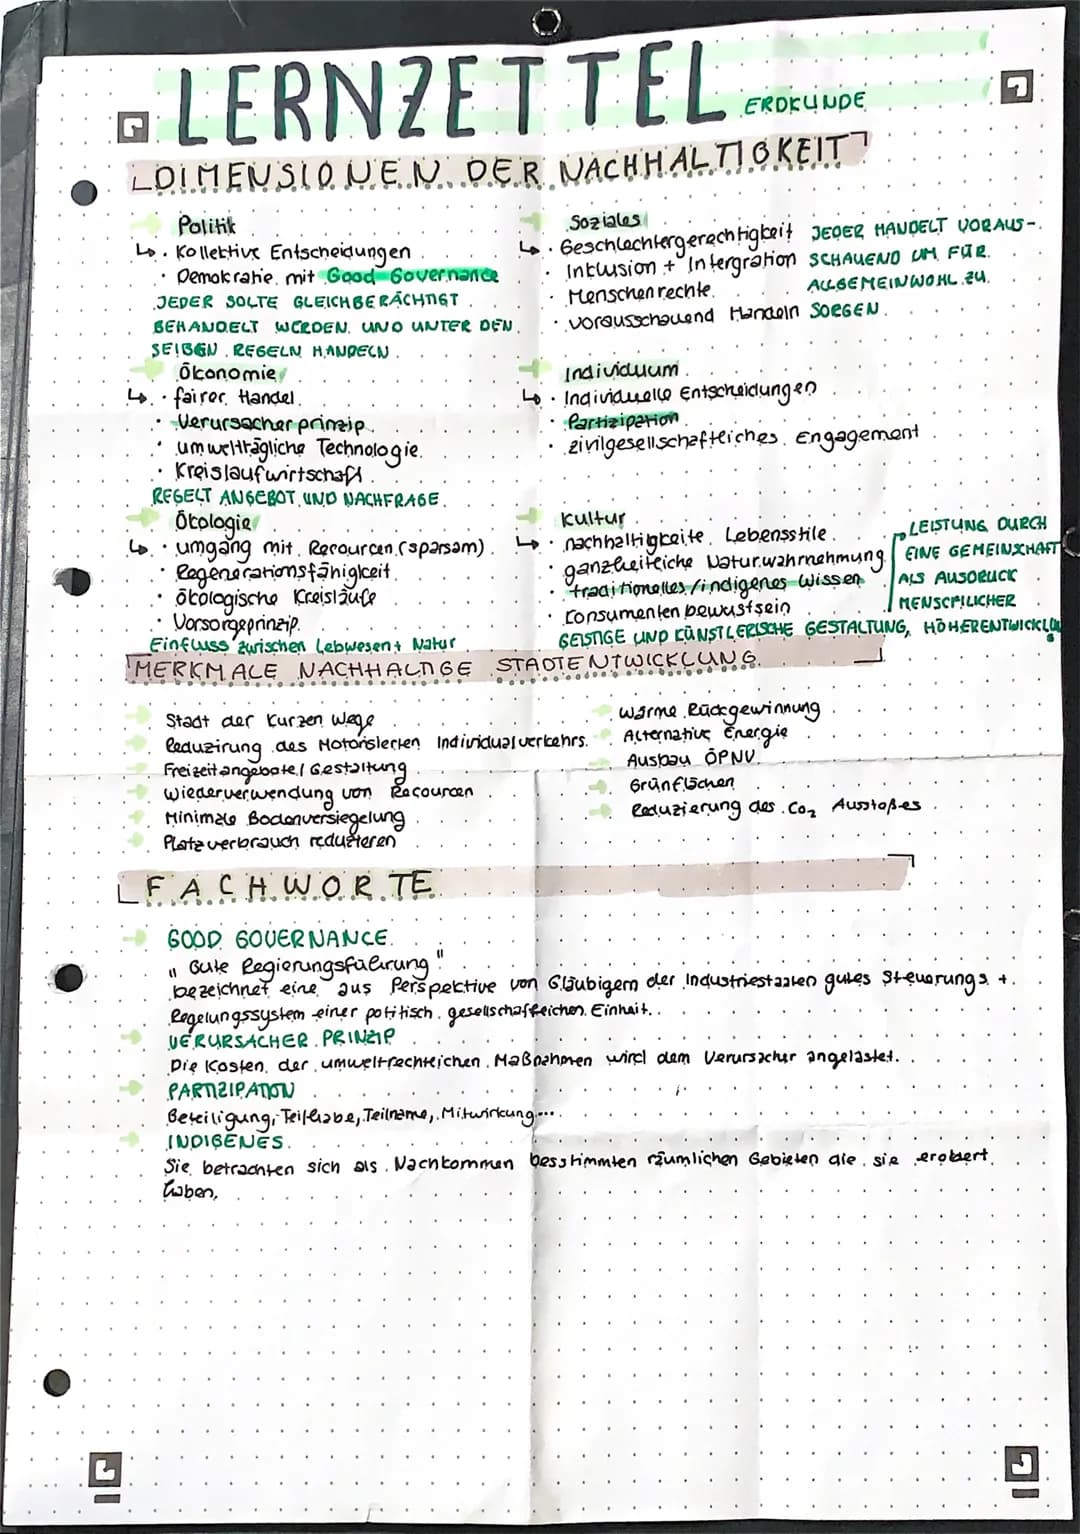 LERNZETTEL ERDKUNDE
DIMENSIONEN DER NACHHALTIGKEIT
Politik
Kollektive Entscheidungen
Demokratie mit Good Governance
JEDER SOLTE GLEICHBERÄCHTIGT
BEHANDELT WERDEN UND UNTER DEN
SELBEN REGELN HANDELN
Soziales
Geschlechtergerechtigkeit
Inklusion + Intergration
Menschenrechte
vorausschauend Handeln
JEDER HANDELT VORAUS-
SCHAUEND UM FÜR
ALLGEMEINWOHL ZU
SORGEN
Ökonomie
fairer Handel
Verursacherprinzip
umweltträgliche Technologie
Kreislaufwirtschaft
REGELT ANGEBOT UND NACHFRAGE
Individuum
Individuelle Entscheidungen
Partizipation
zivilgesellschaftliches Engagement
Ökologie
umgang mit Recourcen (sparsam)
Regenerationsfähigkeit
ökologische Kreisläufe
Vorsorgeprinzip
Einfluss zwischen Lebwesen + Natur
Kultur
nachhaltigkeite Lebensstile
ganzheitliche Naturwahrnehmung
traditionelles/indigenes Wissen
Consumenten bewustsein
LEISTUNG DURCH
EINE GEMEINSCHAFT
ALS AUSDRUCK
MENSCHLICHER
GEISTIGE UND KÜNSTLERISCHE GESTALTUNG, HÖHERENTWICKLUNG
MERKMALE NACHHALTIGE STADTENTWICKLUNG
Stadt der kurzen Wege
Reduzirung des Motorisierten Individualverkehrs
Freizeitangebote/Gestaltung
Wiederverwendung von Recourcen
Minimale Bodenversiegelung
Platzverbrauch reduzieren
Wärme Rückgewinnung
Alternative Energie
Ausbau ÖPNV
Grünflächen
Reduzierung des Co2 Ausstoßes
FACHWORTE
GOOD GOVERNANCE
„Gute Regierungsführung"
bezeichnet eine aus Perspektive von Gläubigern der Industriestaaten gutes Steuerungs +
Regelungssystem einer politisch gesellschaftlichen Einheit.
VERURSACHER PRINZIP
Die Kosten der umweltrechtlichen Maßnahmen wird dem Verursacher angelastet.
PARTIZIPATION
Beteiligung, Teilhabe, Teilname, Mitwirkung...
INDIGENES
Sie betrachten sich als Nachkommen besstimmten räumlichen Gebieten die sie erobert
haben,